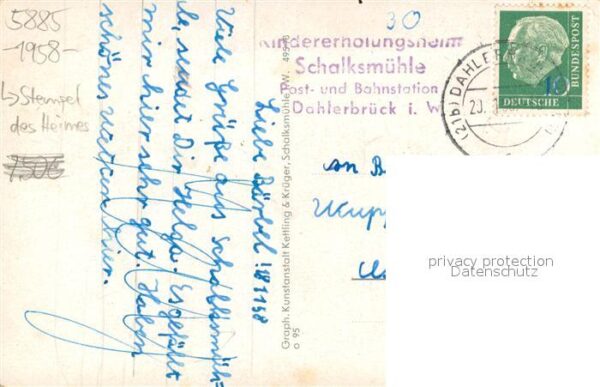 5885
-1958-
↳ Stempel
des Heimes
7,50€
30
Kindererholungsheim
Schalksmühle
Post- und Bahnstation
Dahlerbrück i. W.
(21b) DAHLERB
20.
10
DEUTSCHE
BUNDESPOST
Liebe Bärbel! 18 1 58
Viele Grüße aus Schalksmüh=
le, sendet Dir Helga. Es gefällt
mir hier sehr gut. Haben
schönes Wetter hier.
Graph. Kunstanstalt Kettling & Krüger, Schalksmühle i. W.
o 95
An
Wupp
privacy protection
Datenschutz